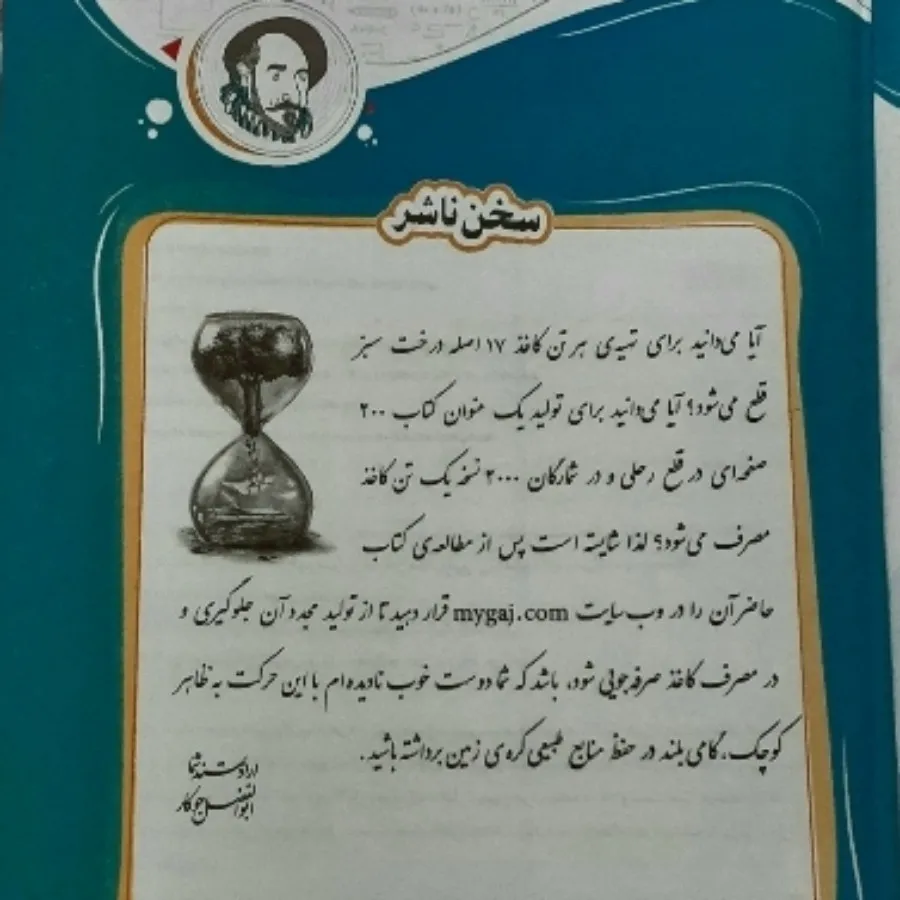 سخن ناشر
آیا می‌دانید برای تهیه‌ی هر تن کاغذ ۱۷ اصله درخت سبز
قطع می‌شود؟ آیا می‌دانید برای تولید یک عنوان کتاب ۲۰۰
صفحه‌ای در قطع رحلی و در شمارگان ۲۰۰۰ نسخه یک تن کاغذ
مصرف می‌شود؟ لذا شایسته است پس از مطالعه‌ی کتاب
حاضر آن را در وب‌سایت mygaj.com قرار دهید تا از تولید مجدد آن جلوگیری و
در مصرف کاغذ صرفه‌جویی شود، باشد که شما دوست خوب نادیده‌ام با این حرکت به ظاهر
کوچک، گامی بلند در حفظ منابع طبیعی کره‌ی زمین برداشته باشید.
ارادتمند شما
ابوالفضل جوکار